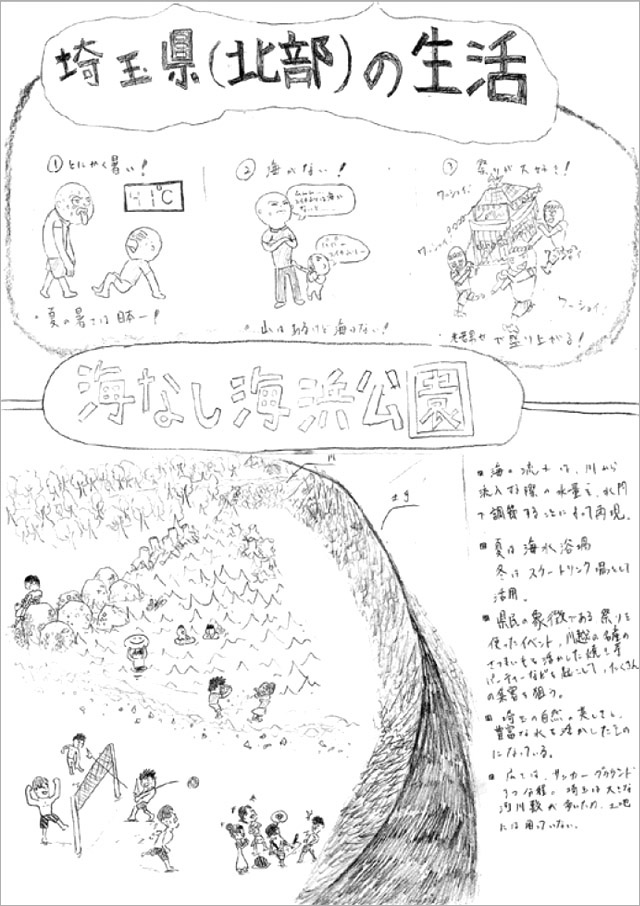 埼玉県(北部)の生活
① とにかく暑い!
41℃
・夏の暑さは日本一!
② 海がない!
・山はあるけど海はない!
③ 祭りが大好き!
ワーショイ!
ワッショイ!
ワーショイ!
で盛り上がる!
海なし海浜公園
川
土手
海の流れは、川から
流入する際の水量を、水門
で調節することによって再現。
夏は海水浴場
冬はスケートリンク場として
活用。
県民の象徴である祭りを
使ったイベント、川越の名産の
さつまいもを活かした焼き芋
パーティーなどを起こして、たくさん
の集客を狙う。
埼玉の自然の美しさと
豊富な水を活かしたもの
になっている。
広さは、サッカーグラウンド
3つ分程。埼玉は大きな
河川敷が多いため、土地
には困っていない。